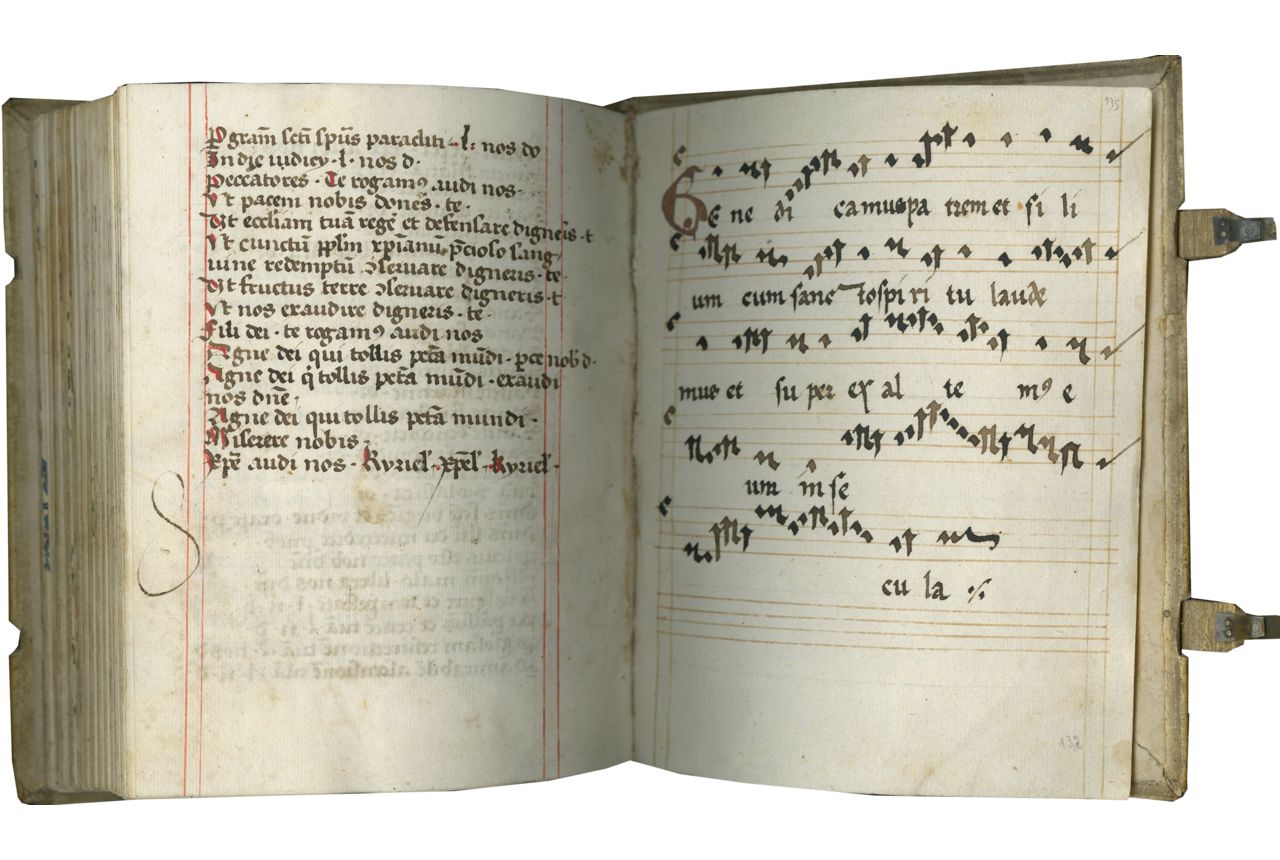 P gram̄ sctī spūs paracliti · l · nos do
In die iudicy · l · nos d ·
peccatores · Te rogamꝰ audi nos ·
Vt pacem nobis dones · te ·
Vt eccliam tuā regē et defensare digneris · t
Vt cunctū pplm xpianū p̄cioso sang
uine redemptū ↄseruare digneris · te
Vt fructus terre ↄseruare digneris · t
Vt nos exaudire digneris · te ·
Fili dei · te rogamꝰ audi nos
Agne dei qui tollis pctā mūdi · pce nob d ·
Agne dei q̇ tollis pctā mūdi · exaudi
nos dn̄e ,
Agne dei qui tollis pctā mundi ·
Miserere nobis ,
Xpē audi nos · Kyriel · xpel · kyriel ·
135
BE ne di camuspa trem et fi li
um cum sanc tospi ri tu laude
mus et su per ex al te mꝰ e
um in se
cu la
132